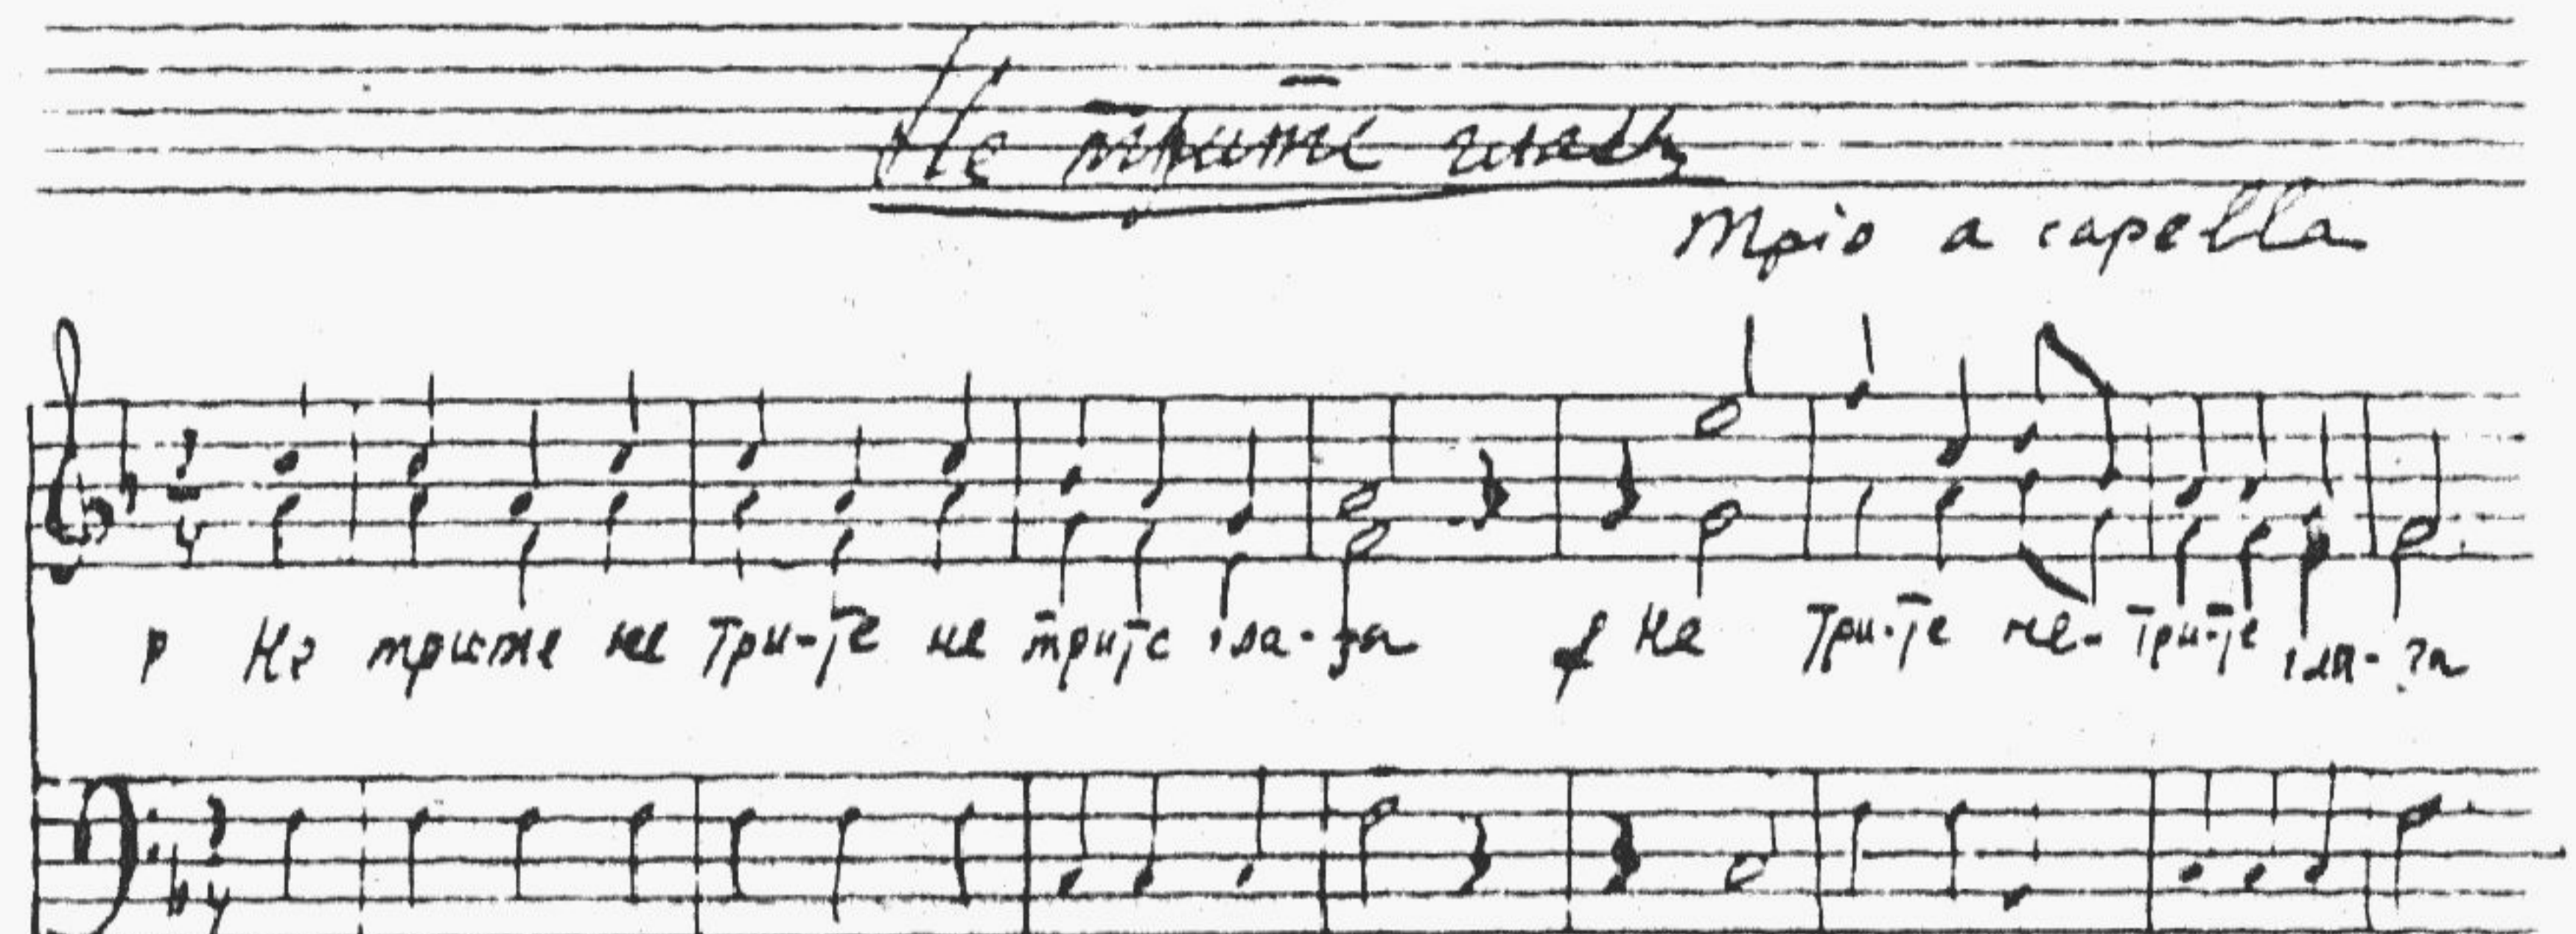 Не трите глаза
Трio a capella
p Не трите не Три-те не трите гла-за f Не Три-те не-три-те гла-за